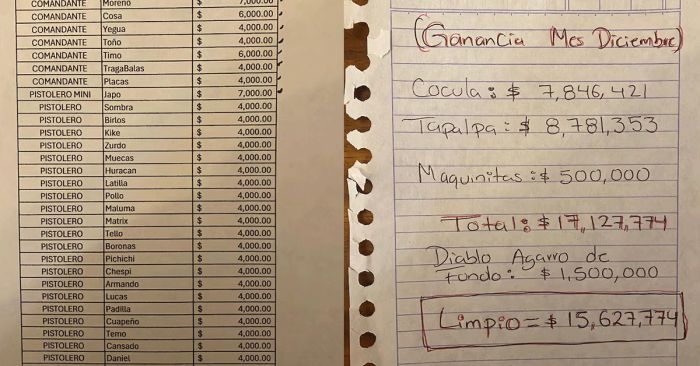 COMANDANTE Moreno $ 7,000.00
COMANDANTE Cosa $ 6,000.00
COMANDANTE Yegua $ 4,000.00
COMANDANTE Toño $ 4,000.00
COMANDANTE Timo $ 6,000.00
COMANDANTE TragaBalas $ 4,000.00
COMANDANTE Placas $ 4,000.00
PISTOLERO MINI Japo $ 7,000.00
PISTOLERO Sombra $ 4,000.00
PISTOLERO Birlos $ 4,000.00
PISTOLERO Kike $ 4,000.00
PISTOLERO Zurdo $ 4,000.00
PISTOLERO Muecas $ 4,000.00
PISTOLERO Huracan $ 4,000.00
PISTOLERO Latilla $ 4,000.00
PISTOLERO Pollo $ 4,000.00
PISTOLERO Maluma $ 4,000.00
PISTOLERO Matrix $ 4,000.00
PISTOLERO Tello $ 4,000.00
PISTOLERO Boronas $ 4,000.00
PISTOLERO Pichichi $ 4,000.00
PISTOLERO Chespi $ 4,000.00
PISTOLERO Armando $ 4,000.00
PISTOLERO Lucas $ 4,000.00
PISTOLERO Padilla $ 4,000.00
PISTOLERO Cuapeño $ 4,000.00
PISTOLERO Temo $ 4,000.00
PISTOLERO Cansado $ 4,000.00
PISTOLERO Daniel $ 4,000.00
(Ganancia Mes Diciembre)
Cocula: $ 7,846,421
Tapalpa: $ 8,781,353
Maquinitas: $ 500,000
Total: $ 17,127,774
Diablo Agarro de
fondo: $ 1,500,000
Limpio = $ 15,627,774